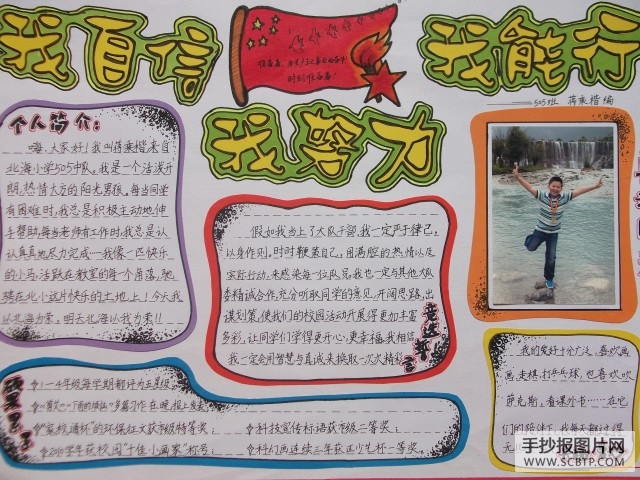 我自信
我能行
我努力
时刻准备着!
505班 蒋乘楷 编
个人简介:
嗨,大家好!我叫蒋乘楷来自
北海小学505中队。我是一个活泼开
朗,热情大方的阳光男孩。每当同学
有困难时,我总是积极主动地伸
手帮助,每当老师有工作时,我总是认
认真真地尽力完成……我像一匹快乐
的小马,活跃在教室的每一个角落,驰
骋在北小这片快乐的土地上!今天我
以北海为荣,明天北海以我为荣!!
假如我当上了大队干部,我一定严于律己,
以身作则。时时鞭策自己,用满腔的热情以及
实际行动,来感染每一位队员。我也一定与其他大队
委精诚合作,充分听取同学的意见,开阔思路,出
谋划策,使我们的校园活动开展得更加丰富
多彩,让同学们学得更开心,更幸福。我相信
我一定会用智慧与真诚来换取一次次精彩
竞选宣言
我的爱好十分广泛,喜欢画
画、走棋、打乒乓球,也喜欢吹
萨克斯,看课外书……在它
们的陪伴下,我每天都过得
1—4年级每学期都评为五星级
科技宣传标语获市级二等奖;
科幻画连续三年获区少儿杯一等奖;
手抄报图片网
WWW.SCBTP.COM